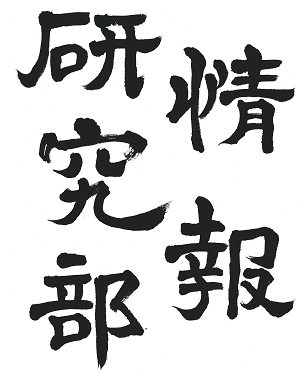 情報
研究部